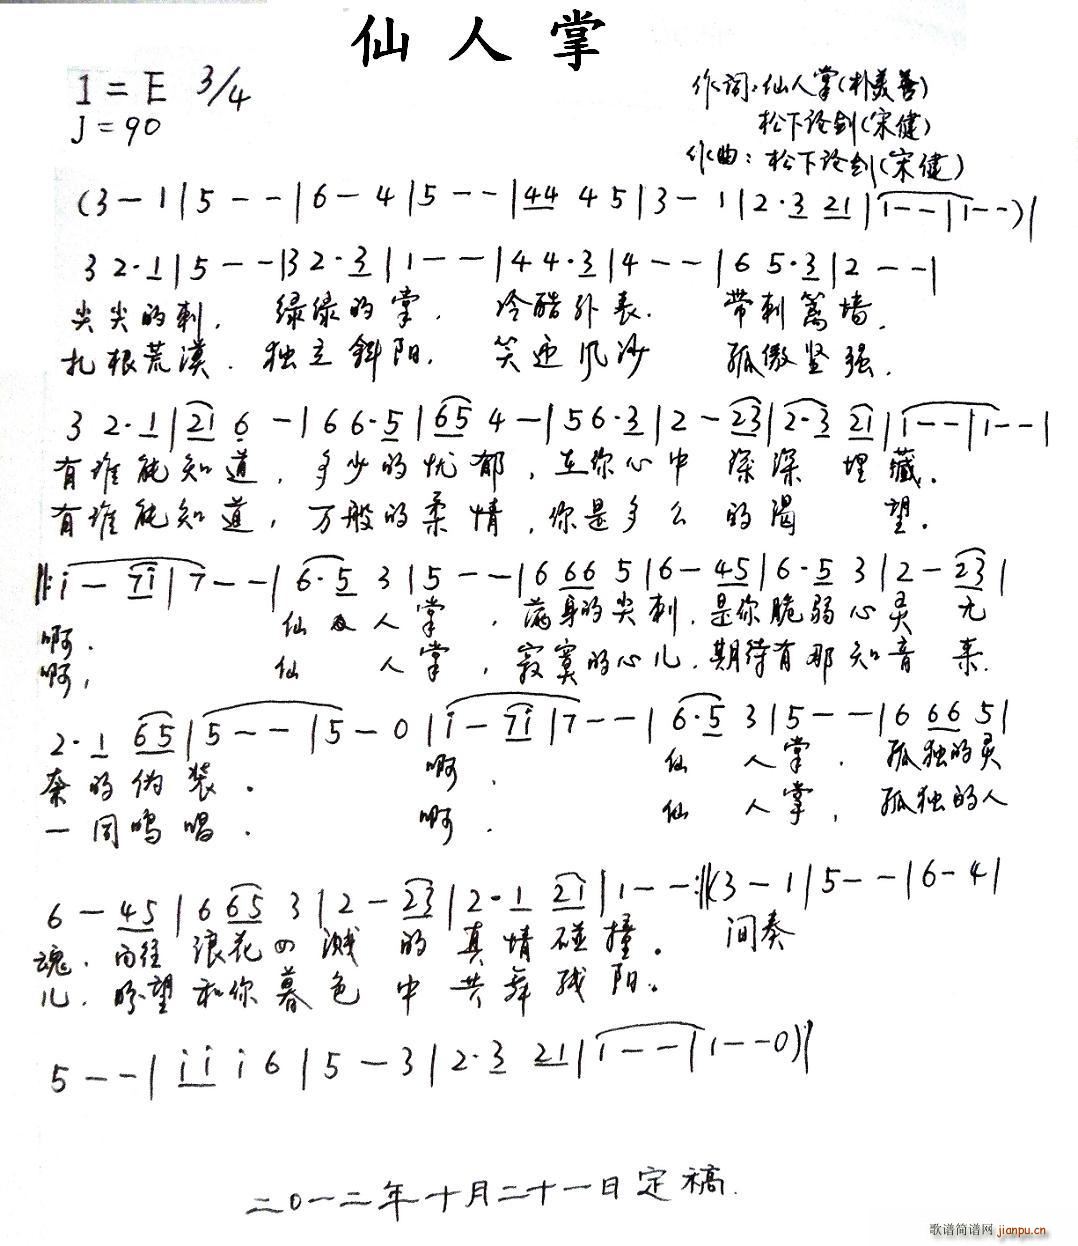 仙人掌
1=E 3/4
作词:仙人掌(朴美善)
J=90
松下论剑(宋健)
作曲:松下论剑(宋健)
(3-1|5--|6-4|5--|44 4 5|3-1|2·3 21|1--|1--)|
3 2·1|5--|3 2·3|1--|4 4·3|4--|6 5·3|2--|
尖尖的刺, 绿绿的掌, 冷酷外表. 带刺篱墙,
扎根荒漠. 独立斜阳. 笑迎风沙 孤傲坚强.
3 2·1|21 6-|6 6·5|65 4-|5 6·3|2-23|2·3 21|1--|1--|
有谁能知道, 多少的忧郁, 在你心中 深深 埋藏.
有谁能知道, 万般的柔情, 你是多么 的渴望.
||:i-7i|7--|6·5 3|5--|6 66 5|6-45|6·5 3|2-23|
啊. 仙人掌, 满身的尖刺, 是你脆弱心灵 无
啊, 仙人掌, 寂寞的心儿, 期待有那知音来.
2·1 65|5--|5-0|i-7i|7--|6·5 3|5--|6 66 5|
奈的伪装. 啊. 仙人掌. 孤独的灵
一同鸣唱. 啊. 仙人掌, 孤独的人
6-45|6 65 3|2-23|2·1 21|1--:||(3-1|5--|6-4|
魂. 向往 浪花四溅 的真情碰撞. 间奏
儿. 盼望和你暮色中共舞残阳.
5--|i i i 6|5-3|2·3 21|1--|1--0)|
二0一二年十月二十一日定稿.
歌谱简谱网 jianpu.cn